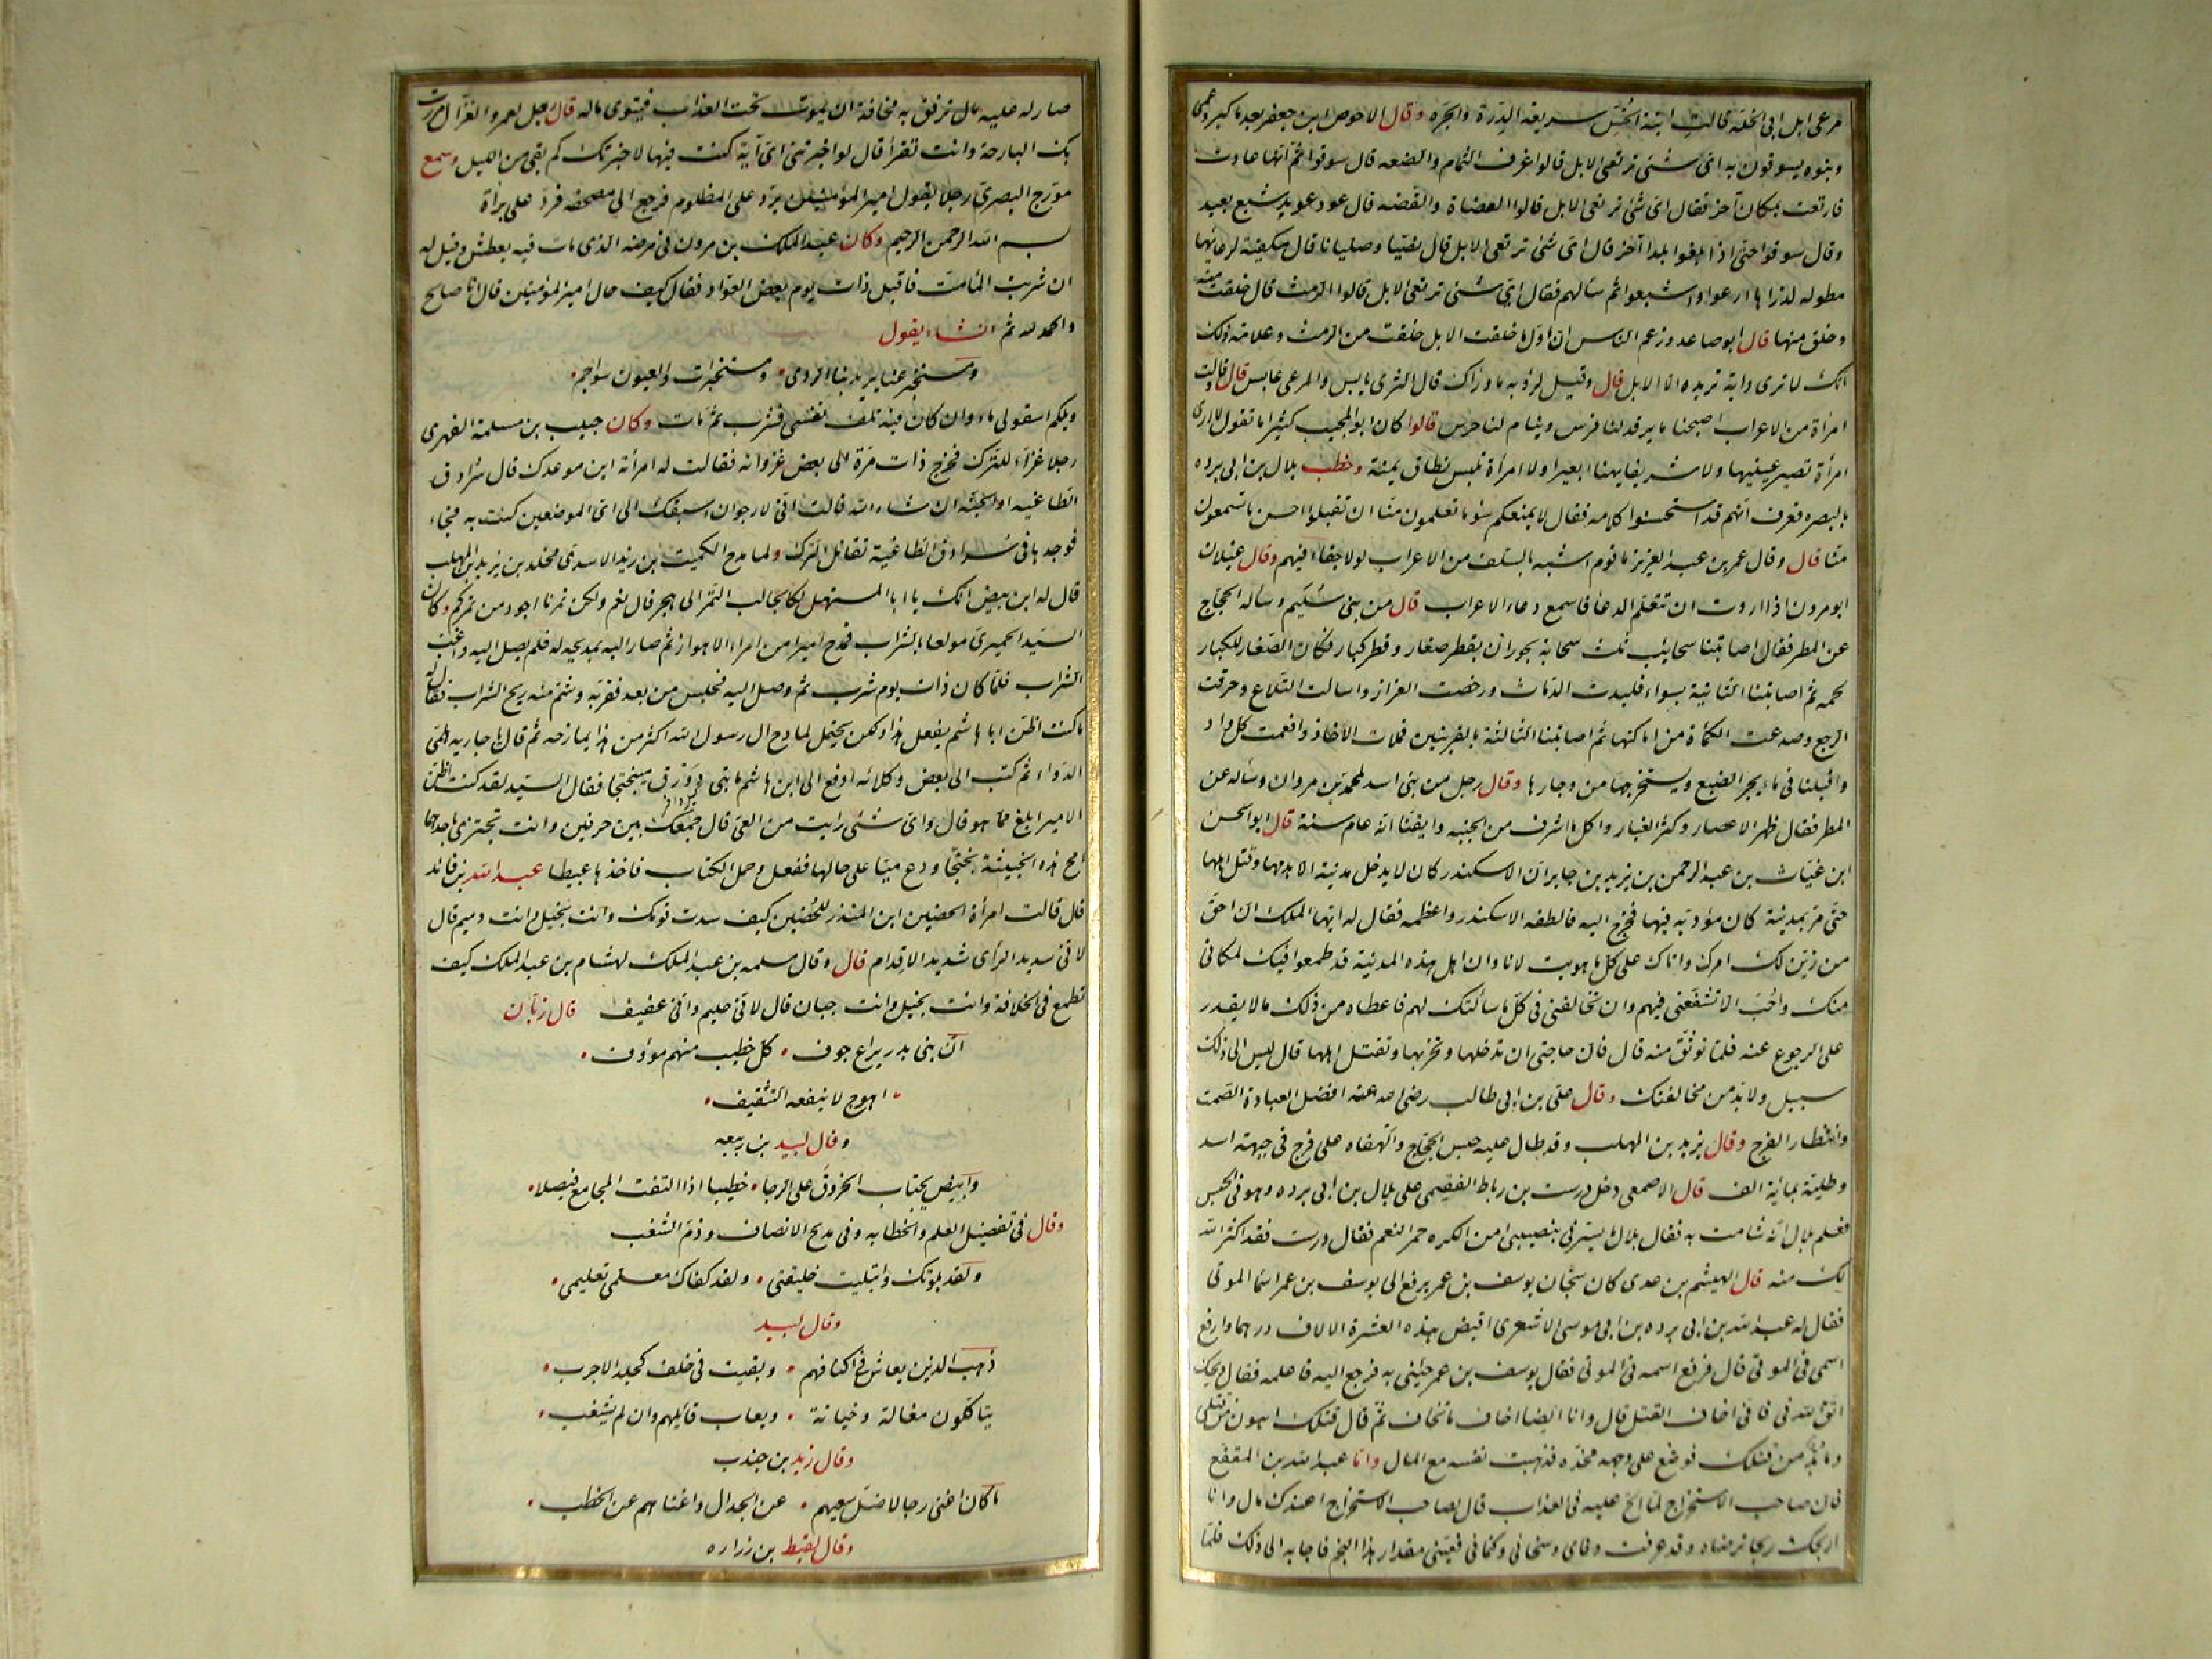 مرعى ابل ابى الخلفه قالت ابنة الخس سريعة الدرة والجره وقال الاحوص ابن جعفر بعد ما كبر وعمى
وبنوه يسوقون به اى شئى ترتعى الابل قالوا غرف الثمام والضعه قال سوقوا ثم انها عادت
فارتعت بمكان آخر فقال اى شئ ترتعى الابل قالوا العضاة والقضه قال عود عويد شبع بعيد
وقال سوقوا حتى اذا بلغوا بلدا آخر قال اى شئ ترتعى الابل قال نصيا وصليانا قال مكفية لرغائها
مطوله لذراها ارعوا واشبعوا ثم سألهم فقال اى شئى ترتعى الابل قالوا الرمث قال خلقت منه
وخلق منها قال ابو صاعد وزعم الناس ان اول ما خلقت الابل خلقت من الرمث وعلامة ذلك
انك لا ترى دابة تريده الا الابل قال وقيل لرؤبه ما وراك قال الثرى يابس والمرعى عابس قال وقالت
امرأة من الاعراب اصبحنا ما يرقد لنا فرس وينام لنا حرس قالوا كان ابو المجيب كثيرا ما تقول لا ارى
امرأة تصبر عينيها ولا شريفا يهنأ بعيرا ولا امرأة تلبس نطاق يمنة وخطب بلال بن ابى برده
بالبصره فعرف انهم قد استحسنوا كلامه فقال لا يمنعكم سؤ ما تعلمون منا ان تقبلوا احسن ما تسمعون
منا قال وقال عمر بن عبد العزيز ما قوم اشبه بالسلف من الاعراب لولا جفاء فيهم وقال غيلان
ابو مرون اذا اردت ان تتعلم الدعا فاسمع دعاء الاعراب قال من بنى سليم وسأله الحجاج
عن المطر فقال اصابتنا سحايب ثلث سحابة بحوران بقطر صغار وقطر كبار فكان الصغار للكبار
لحمه ثم اصابتنا الثانية بسواء فلبدت الدماث ورخصت العزاز واسالت التلاع وخرقت
الرجع وصدعت الكمأة من اماكنها ثم اصابتنا الثالثة بالقريتين فملأت الاخاذ وافعمت كل واد
واقبلنا فى ماء يجر الضبع ويستخرجها من وجارها وقال رجل من بنى اسد لمحمد بن مروان وسأله عن
المطر فقال ظهر الاعصار وكثر الغبار واكل ما اشرف من الجنبه وايقنا انه عام سنة قال ابو الحسن
ابن غياث بن عبد الرحمن بن يزيد بن جابر ان الاسكندر كان لا يدخل مدينة الا هدمها وقتل اهلها
حتى مر بمدينة كان مؤدبه فيها فخرج اليه فالطفه الاسكندر واعظمه فقال له ايها الملك ان احق
من زين لك امرك واتاك على كل ما هويت لانا وان اهل هذه المدينة قد طمعوا فيك لمكانى
منك واحب الا تشفعنى فيهم وان تخالفنى فى كل ما سألتك لهم فاعطاه من ذلك ما لا يقدر
على الرجوع عنه فلما توثق منه قال فان حاجتى ان تدخلها وتخربها وتقتل اهلها قال ليس الى ذلك
سبيل ولا بد من مخالفتك وقال على بن ابى طالب رضى الله عنه افضل العبادة الصمت
وانتظار الفرج وقال يزيد بن المهلب وقد طال عليه حبس الحجاج والهفاه على فرج فى جبهة اسد
وطلية بمائة الف قال الاصمعى دخل درست بن رباط الفقيمى على بلال بن ابى برده وهو فى الحبس
فعلم بلال انه شامت به فقال بلال ما يسرنى بنصيبى من الكره حمر النعم فقال درست فقد اكثر الله
لك منه قال الهيثم بن عدى كان سجان يوسف بن عمر يرفع الى يوسف بن عمر اسما الموتى
فقال له عبد الله بن ابى برده بن ابى موسى الاشعرى اقبض هذه العشرة الالاف درهما وارفع
اسمى فى الموتى قال فرفع اسمه فى الموتى فقال يوسف بن عمر جئنى به فرجع اليه فاعلمه فقال ويحك
اتق الله فى فانى اخاف القتل قال وانا ايضا اخاف ما تخاف ثم قال قتلك اهون من قتلى
ولا بد من قتلك فوضع على وجهه مخده فذهبت نفسه مع المال واما عبد الله بن المقفع
فان صاحب الاستخراج لما الح عليه فى العذاب قال لصاحب الاستخراج اعندك مال وانا
اربحك ربحا ترضاه وقد عرفت وفاى وسخائى وكتمانى فعينى مقدار هذا النجم فاجابه الى ذلك فلما
صار له عليه مال ترفق به مخافة ان يموت تحت العذاب فيتوى ماله قال رجل لعمرو الغزال مررت
بك البارحة وانت تقرأ قال لو اخبرتنى اى آية كنت فيها لاخبرتك كم بقى من الليل وسمع
مورج البصرى رجلا يقول امير المؤمنين يرد على المظلوم فرجع الى مصحفه فرد على براة
بسم الله الرحمن الرحيم وكان عبد الملك بن مرون فى مرضه الذى مات فيه يعطش وقيل له
ان شربت المأمت فاقبل ذات يوم بعض العواد فقال كيف حال امير المؤمنين قال انا صالح
والحمد لله ثم انشاء يقول
ومستخبر عنا يريد بنا الردى • ومستخبرات والعيون سواجم •
ويلكم اسقونى ماء وان كان فيه تلف نفسى فشرب ثم مات وكان حبيب بن مسلمة الفهرى
رجلا غزاء للترك فخرج ذات مرة الى بعض غزواته فقالت له امرأته اين موعدك قال سرادق
الطاغيه او الجنة ان شاء الله قالت انى لارجو ان اسبقك الى اى الموضعين كنت به فجاء
فوجدها فى سرادق الطاغية تقاتل الترك ولما مدح الكميت بن زيد الاسدى مخلد بن يزيد بن المهلب
قال له ابن بيض انك يا ابا المستهل لكجالب التمر الى هجر قال نعم ولكن تمرنا اجود من تمركم وكان
السيد الحميرى مولعا بالشراب فمدح اميرا من امراء الاهواز ثم صار اليه بمديحه له فلم يصل اليه واغب
الشراب فلما كان ذات يوم شرب ثم وصل اليه فجلس من بعد فقربه وشم منه ريح الشراب فقال له
ما كنت اظن ابا هاشم يفعل هذا ولكن يحتمل لمادح ال رسول الله اكثر من هذا يمازحه ثم قال يا جاريه هلمى
الدواة ثم كتب الى بعض وكلائه ادفع الى ابن هاشم مائتى دورق ميبختجا فقال السيد لقد كنت اظن
الامير ابلغ مما هو قال واى شئى رايت من العى قال جمعك بين حرفين وانت تجتزى باحدهما
امح هذه الخبيثة بختجا ودع ميبا على حالها ففعل وحمل الكتاب فاخذها عبيطا عبد الله بن فائد
قال قالت امرأة الحضين ابن المنذر للحضين كيف سدت قومك وانت بخيل وانت دميم قال
لانى سديد الرأى شديد الاقدام قال وقال مسلمه بن عبد الملك لهشام بن عبد الملك كيف
تطمع فى الخلافة وانت بخيل وانت جبان قال لانى حليم وانى عفيف قال زبان
ان بنى بدر يراع جوف • كل خطيب منهم مؤوف •
• اهوج لا ينفعه التثقيف •
وقال لبيد بن ربيعه
وابيض يجتاب الخروق على الوجا • خطيبا اذا التفت المجامع فيصلا •
وقال فى تفضيل العلم والخطابه وفى مديح الانصاف وذم الشغب
ولقد بلوتك وابتليت خليقتى • ولقد كفاك معلمى تعليمى •
وقال لبيد
ذهب الذين يعاش فى اكنافهم • وبقيت فى خلف كجلد الاجرب •
يتاكلون مغالة وخيانة • ويعاب قائلهم وان لم يشغب •
وقال زيد بن جندب
ما كان اغنى رجالا ضل سعيهم • عن الجدال واغناهم عن الخطب •
وقال لقيط بن زراره